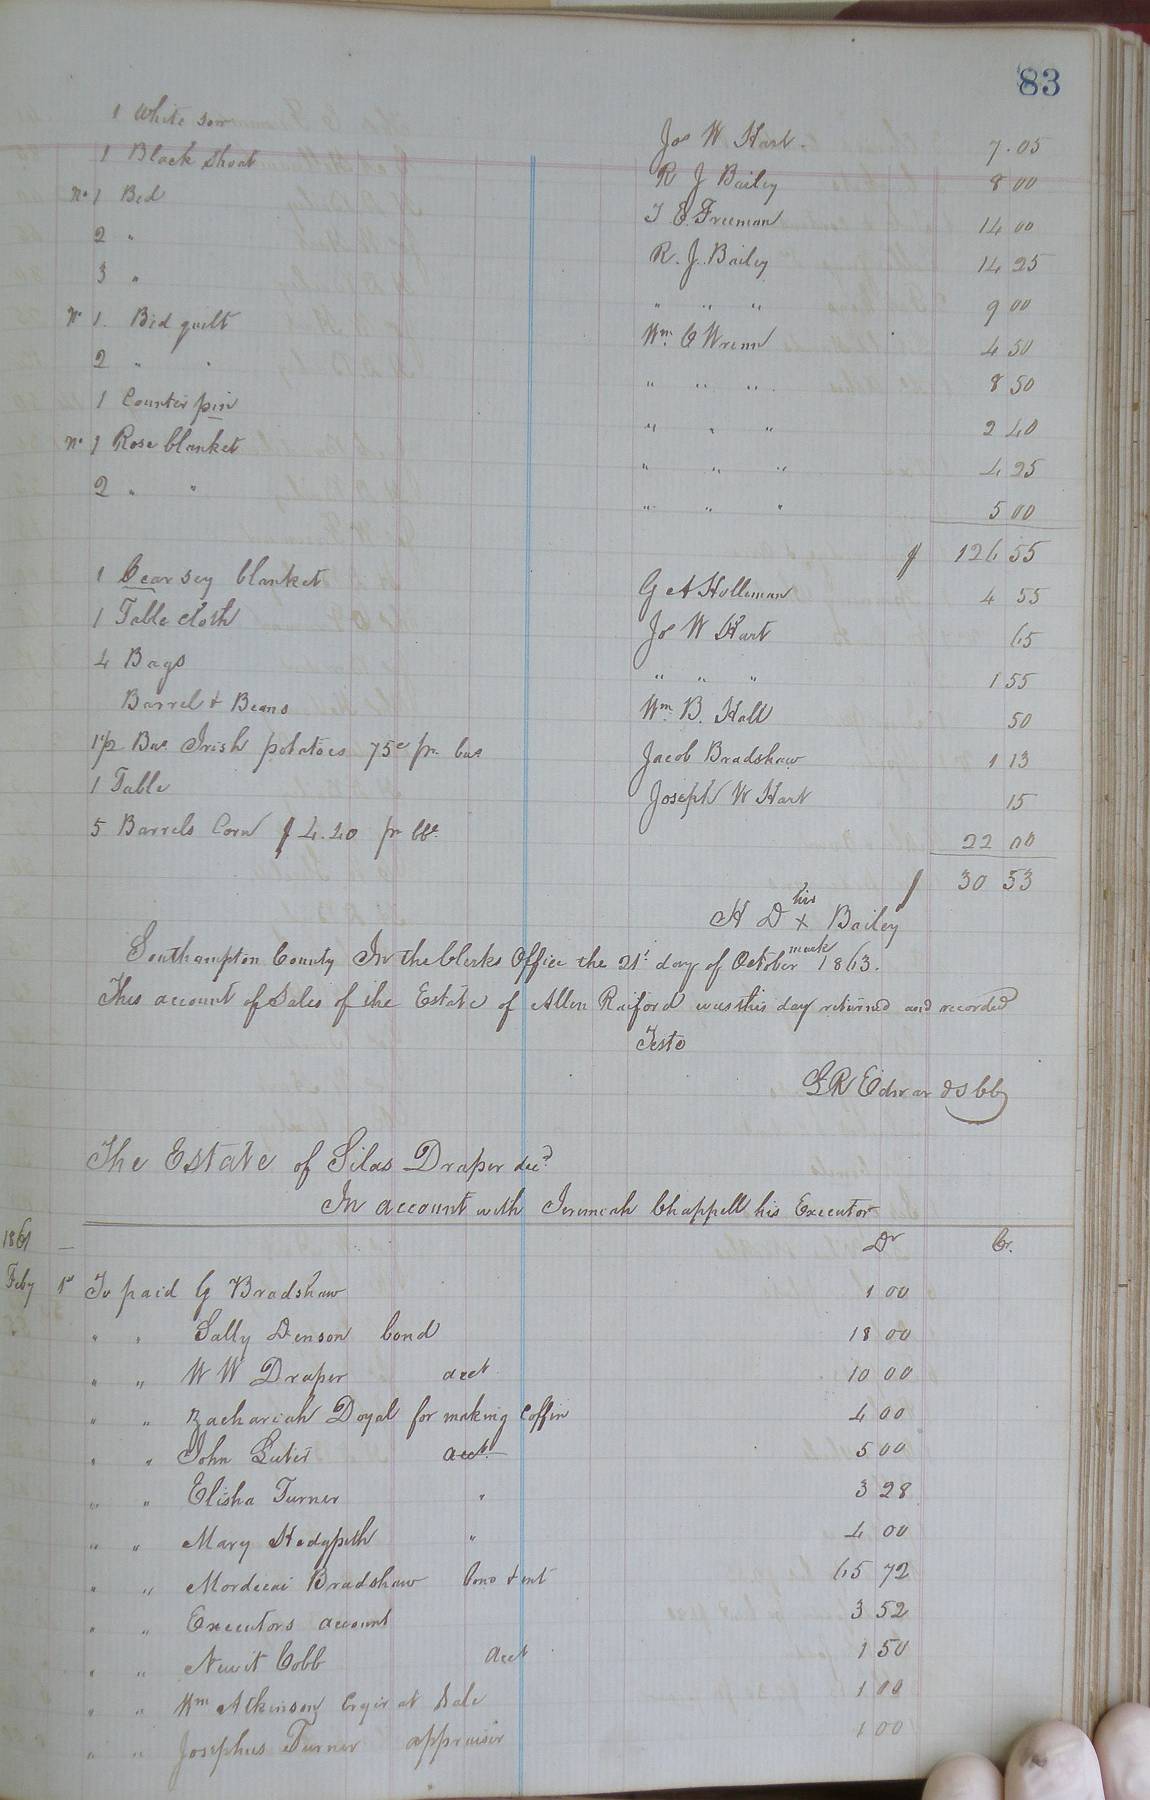 83
1 White sow Jos W Hart. 7.05
1 Black Shoat R J Bailey 8 00
No 1 Bed J E. Freeman 14 00
2 " R. J. Bailey 14 25
3 " " " " 9 00
No 1. Bed quilt Wm. C Wrenn 4 50
2 " " " " " 8 50
1 Counter pin " " " 2 40
No 1 Rose blanket " " " 4 25
2 " " " " " 5 00
$ 126 55
1 Cearsey blanket G A Holleman 4 55
1 Table cloth Jos W Hart 65
4 Bags " " " 1 55
Barrel & Beans Wm B. Hall 50
1 1/2 Bus Irish potatoes 75c pr bus Jacob Bradshaw 1 13
1 Table Joseph W Hart 15
5 Barrels Corn $4.40 pr bbl. 22 00
$ 30 53
his
H D x Bailey
mark
Southampton County In the Clerks Office the 21st day of October 1863.
This account of Sales of the Estate of Allen Raiford was this day returned and recorded
Teste
L R Edwards CC
The Estate of Silas Draper decd
In account with Jeremiah Chappell his Executor
1861 Dr Cr.
Feby 1st To paid G Bradshaw 1 00
" " Sally Denson bond 18 00
" " W W Draper acct 10 00
" " Zachariah Doyal for making Coffin 4 00
" " John Luter acct 5 00
" " Elisha Turner " 3 28
" " Mary Hedgpeth " 4 00
" " Mordecai Bradshaw bond & int 65 72
" " Executors account 3 52
" " Newit Cobb acct 1 50
" " Wm Atkinson Cryer at Sale 1 00
" " Josephus Turner appraiser 1 00